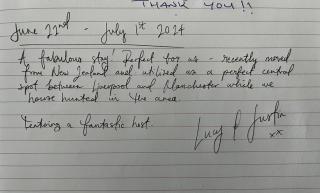 THANK YOU!!
June 22nd - July 1st 2014
A fabulous stay! Perfect for us - recently moved
from New Zealand and utilized as a perfect central
spot between Liverpool and Manchester while we
house hunted in the area.
a fantastic host.
Lucy & Justin
xx